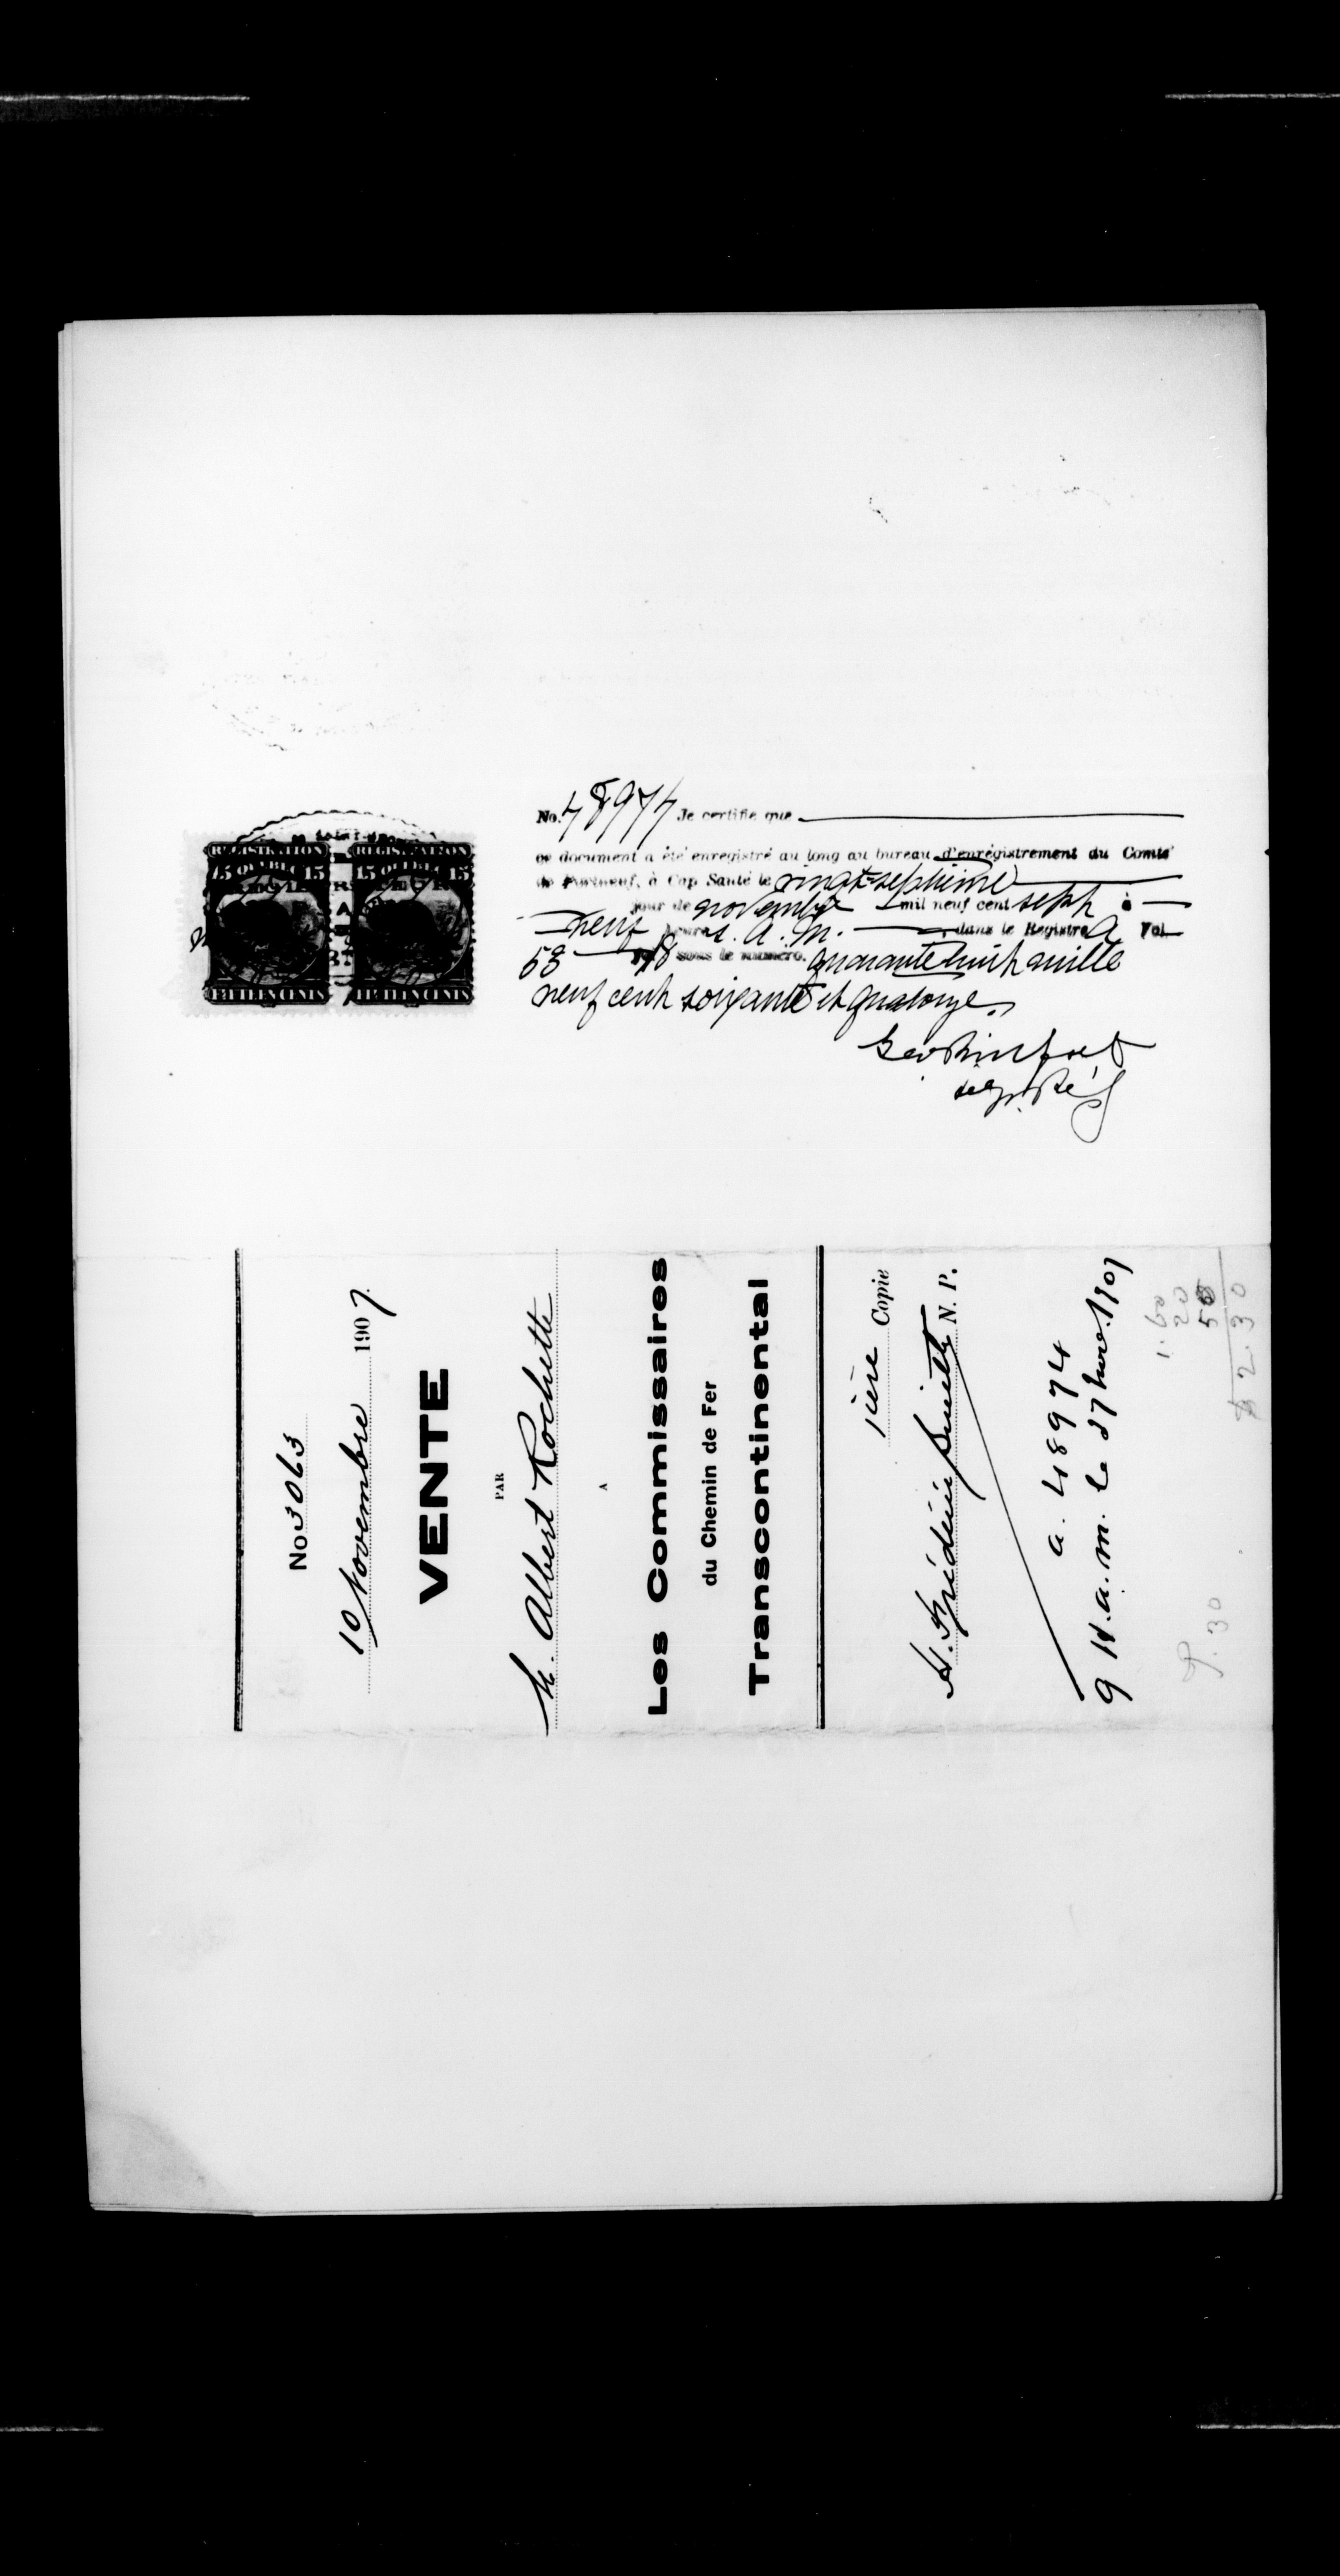 REGISTRATION REGISTRATION
15 QUEBEC 15 15 QUEBEC 15
FIFTEEN CENTS FIFTEEN CENTS
No. 48974 Je certifie que
ce document a été enregistré au long au bureau d'enrégistrement du Comté
de Portneuf, à Cap Santé le vingt-septième
jour de novembre mil neuf cent sept à
neuf heures. A. M. dans le Registre A Vol.
58 sous le numéro. quarante huit mille
neuf cent soixante et quatorze.
No 3063
10 Novembre 1907.
VENTE
PAR
M. Albert Rochette
A
Les Commissaires
du Chemin de Fer
Transcontinental
1ière Copie
N. P.
a. 48974
9 H. a. m. le 27 nov. 1907
1.60
20
50
$ 2.30
.30